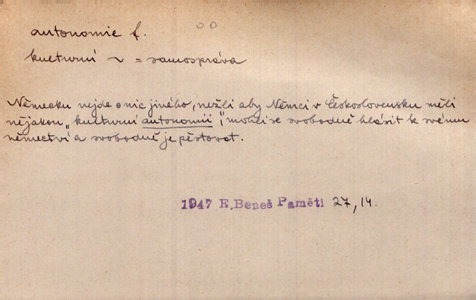 autonomie f.
kulturní ~ = samospráva
Německu nejde o nic jiného, nežli aby Němci v Československu měli
nějakou „kulturní autonomii", mohli se svobodně hlásit k svému
němectví a svobodně je pěstovat.
1947 E. Beneš Paměti 27, 14.